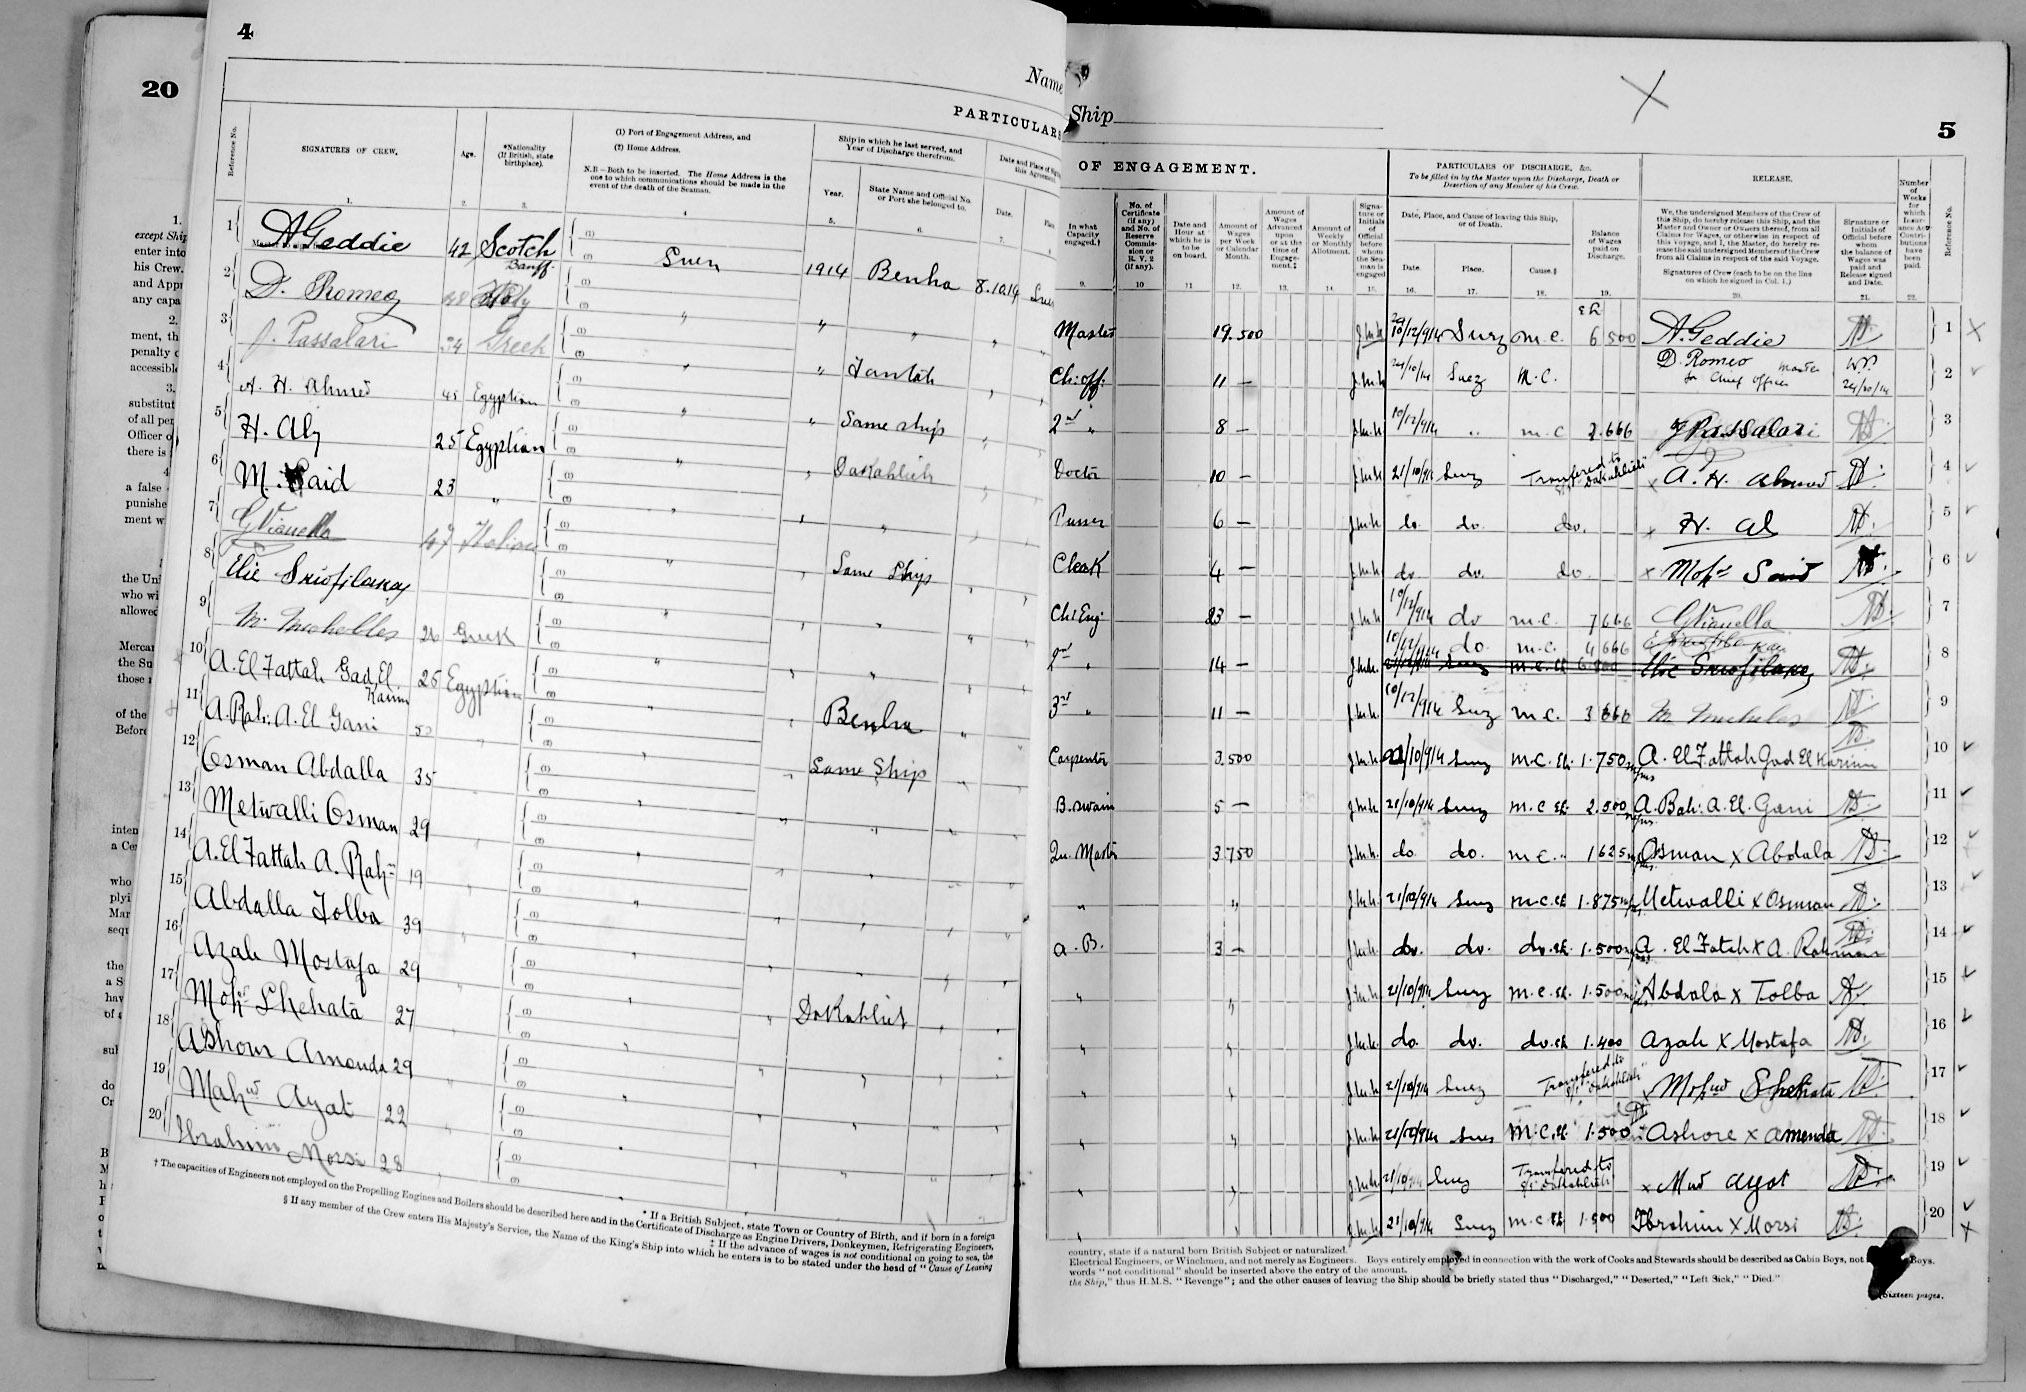 20
1.
except Ship
enter into
his Crew.
and Appr
any capa
2.
ment, th
penalty
accessible
3.
substitut
of all per
Officer o
there is
4
a false
punishe
ment w
the Uni
who wi
allowed
Mercan
the Su
those
of the
Before
inten
a Cer
who
plyi
Mar
sequ
the
a S
hav
of a
sul
do
Cr
4
Name
PARTICULARS
Reference No.
SIGNATURES OF CREW.
Age.
*Nationality (If British, state birthplace).
(1) Port of Engagement Address, and
(2) Home Address.
N.B.—Both to be inserted. The Home Address is the one to which communications should be made in the event of the death of the Seaman.
Ship in which he last served, and Year of Discharge therefrom.
Year.
State Name and Official No. or Port she belonged to.
Date and Place of
this Agreement
Date.
1. 2. 3. 4 5. 6. 7.
1 A Geddie 42 Scotch Banff (1) (2) Suez 1914 Benha 8.10.14 Suez
2 D. Romeo 48 Italy (1) (2) " " " "
3 J. Passalari 34 Greek (1) (2) " " Tantah "
4 A. H. Ahmed 45 Egyptian (1) (2) " " Same ship "
5 H. Aly 25 Egyptian (1) (2) " " Dakahlieh "
6 M. Said 23 " (1) (2) " " "
7 G Vianello 47 Italian (1) (2) " " Same Ship "
8 Elie (1) (2) " " "
9 M. Micheles 26 Greek (1) (2) " " "
10 A. El Fattah Gad El Karim 25 Egyptian (1) (2) " " Benha "
11 A. Rah: A. El Gani 50 " (1) (2) " " Same Ship "
12 Osman Abdalla 35 (1) (2) " " "
13 Metwalli Osman 29 (1) (2) " " "
14 A. El Fattah A. Rahn 19 " (1) (2) " " "
15 Abdalla Tolba 39 (1) (2) " " "
16 Azab Mostafa 29 " (1) (2) " " Dakahlieh "
17 Mohd Shehata 27 (1) (2) " " "
18 Ashour Amenda 29 " (1) (2) " " "
19 Mahd Ayat 22 " (1) (2) " " "
20 Ibrahim Morsi 28 " (1) (2) "
* If a British Subject, state Town or Country of Birth, and if born in a foreign
† The capacities of Engineers not employed on the Propelling Engines and Boilers should be described here and in the Certificate of Discharge as Engine Drivers, Donkeymen, Refrigerating Engineers,
‡ If the advance of wages is not conditional on going to sea, the
§ If any member of the Crew enters His Majesty's Service, the Name of the King's Ship into which he enters is to be stated under the head of "Cause of Leaving
5
Ship
OF ENGAGEMENT.
PARTICULARS OF DISCHARGE, &c.
To be filled in by the Master upon the Discharge, Death or Desertion of any Member of his Crew.
RELEASE.
In what Capacity engaged.†
No. of Certificate (if any) and No. of Reserve Commission or R. V. 2 (if any).
Date and Hour at which he is to be on board.
Amount of Wages per Week or Calendar Month.
Amount of Wages Advanced upon or at the time of Engagement.‡
Amount of Weekly or Monthly Allotment.
Signature or Initials of Official before whom the Seaman is engaged
Date, Place, and Cause of leaving this Ship, or of Death.
Date. Place. Cause.§
Balance of Wages paid on Discharge.
We, the undersigned Members of the Crew of this Ship, do hereby release this Ship, and the Master and Owner or Owners thereof, from all Claims for Wages, or otherwise in respect of this Voyage, and I, the Master, do hereby release the said undersigned Members of the Crew from all Claims in respect of the said Voyage.
Signatures of Crew (each to be on the line on which he signed in Col. 1.)
Signature or Initials of Official before whom the balance of Wages was paid and Release signed and Date.
Number of Weeks for which Insurance Act Contributions have been paid.
Reference No.
9. 10 11. 12. 13. 14. 15. 16. 17. 18. 19. 20. 21. 22.
Master 19.500 10/12/914 Suez m.c. 6 500 A. Geddie 1
Ch: off: 11 — 24/10/14 Suez M.C. D. Romeo Master for Chief Officer 24/10/14 2
2nd " 8 — 10/12/914 " m.c 2.666 J Passalari 3
Doctor 10 — 21/10/914 Suez Transfered to Dakahlieh x A. H. Ahmed 4
Purser 6 — do. do. do. x H. Al 5
Clerk 4 — do. do. do. x Mohd Said 6
Ch: Eng: 23 — 10/12/914 do m.c. 7 666 G Vianello 7
2nd " 14 — 10/12/914 do. m.c. 4 666 8
3rd " 11 — 10/12/914 Suez m.c. 3 660 M Micheles 9
Carpenter 3.500 21/10/914 Suez m.c. 1.750 A. El Fattah Gad El Karim 10
B. swain 5 — 21/10/914 Suez m.c 2.500 A. Bah: A. El. Gani 11
Qu. Master 3.750 do. do. m.c. 1 625 Osman x Abdala 12
" " 21/10/914 Suez m.c. 1.875 Metwalli x Osman 13
A. B. 3 — do. do. do. 1.500 A. El Fatah x A. Rahman 14
" " 21/10/914 Suez m.c. 1.500 Abdala x Tolba 15
" " do. do. do. 1.400 Azab x Mostafa 16
" " 21/10/914 Suez Transfered to S/S Dakahlieh x Mohmd Shehata 17
" " 21/10/914 Suez M.C. 1.500 Ashore x Amenda 18
" " 21/10/914 Suez Transfered to S/S Dakahlieh x Mud Ayat 19
" " 21/10/914 Suez m.c 1.500 Ibrahim x Morsi 20
country, state if a natural born British Subject or naturalized.
Electrical Engineers, or Winchmen, and not merely as Engineers. Boys entirely employed in connection with the work of Cooks and Stewards should be described as Cabin Boys, not Boys.
words "not conditional" should be inserted above the entry of the amount.
the Ship," thus H.M.S. "Revenge"; and the other causes of leaving the Ship should be briefly stated thus "Discharged," "Deserted," "Left Sick," "Died."
Sixteen pages.